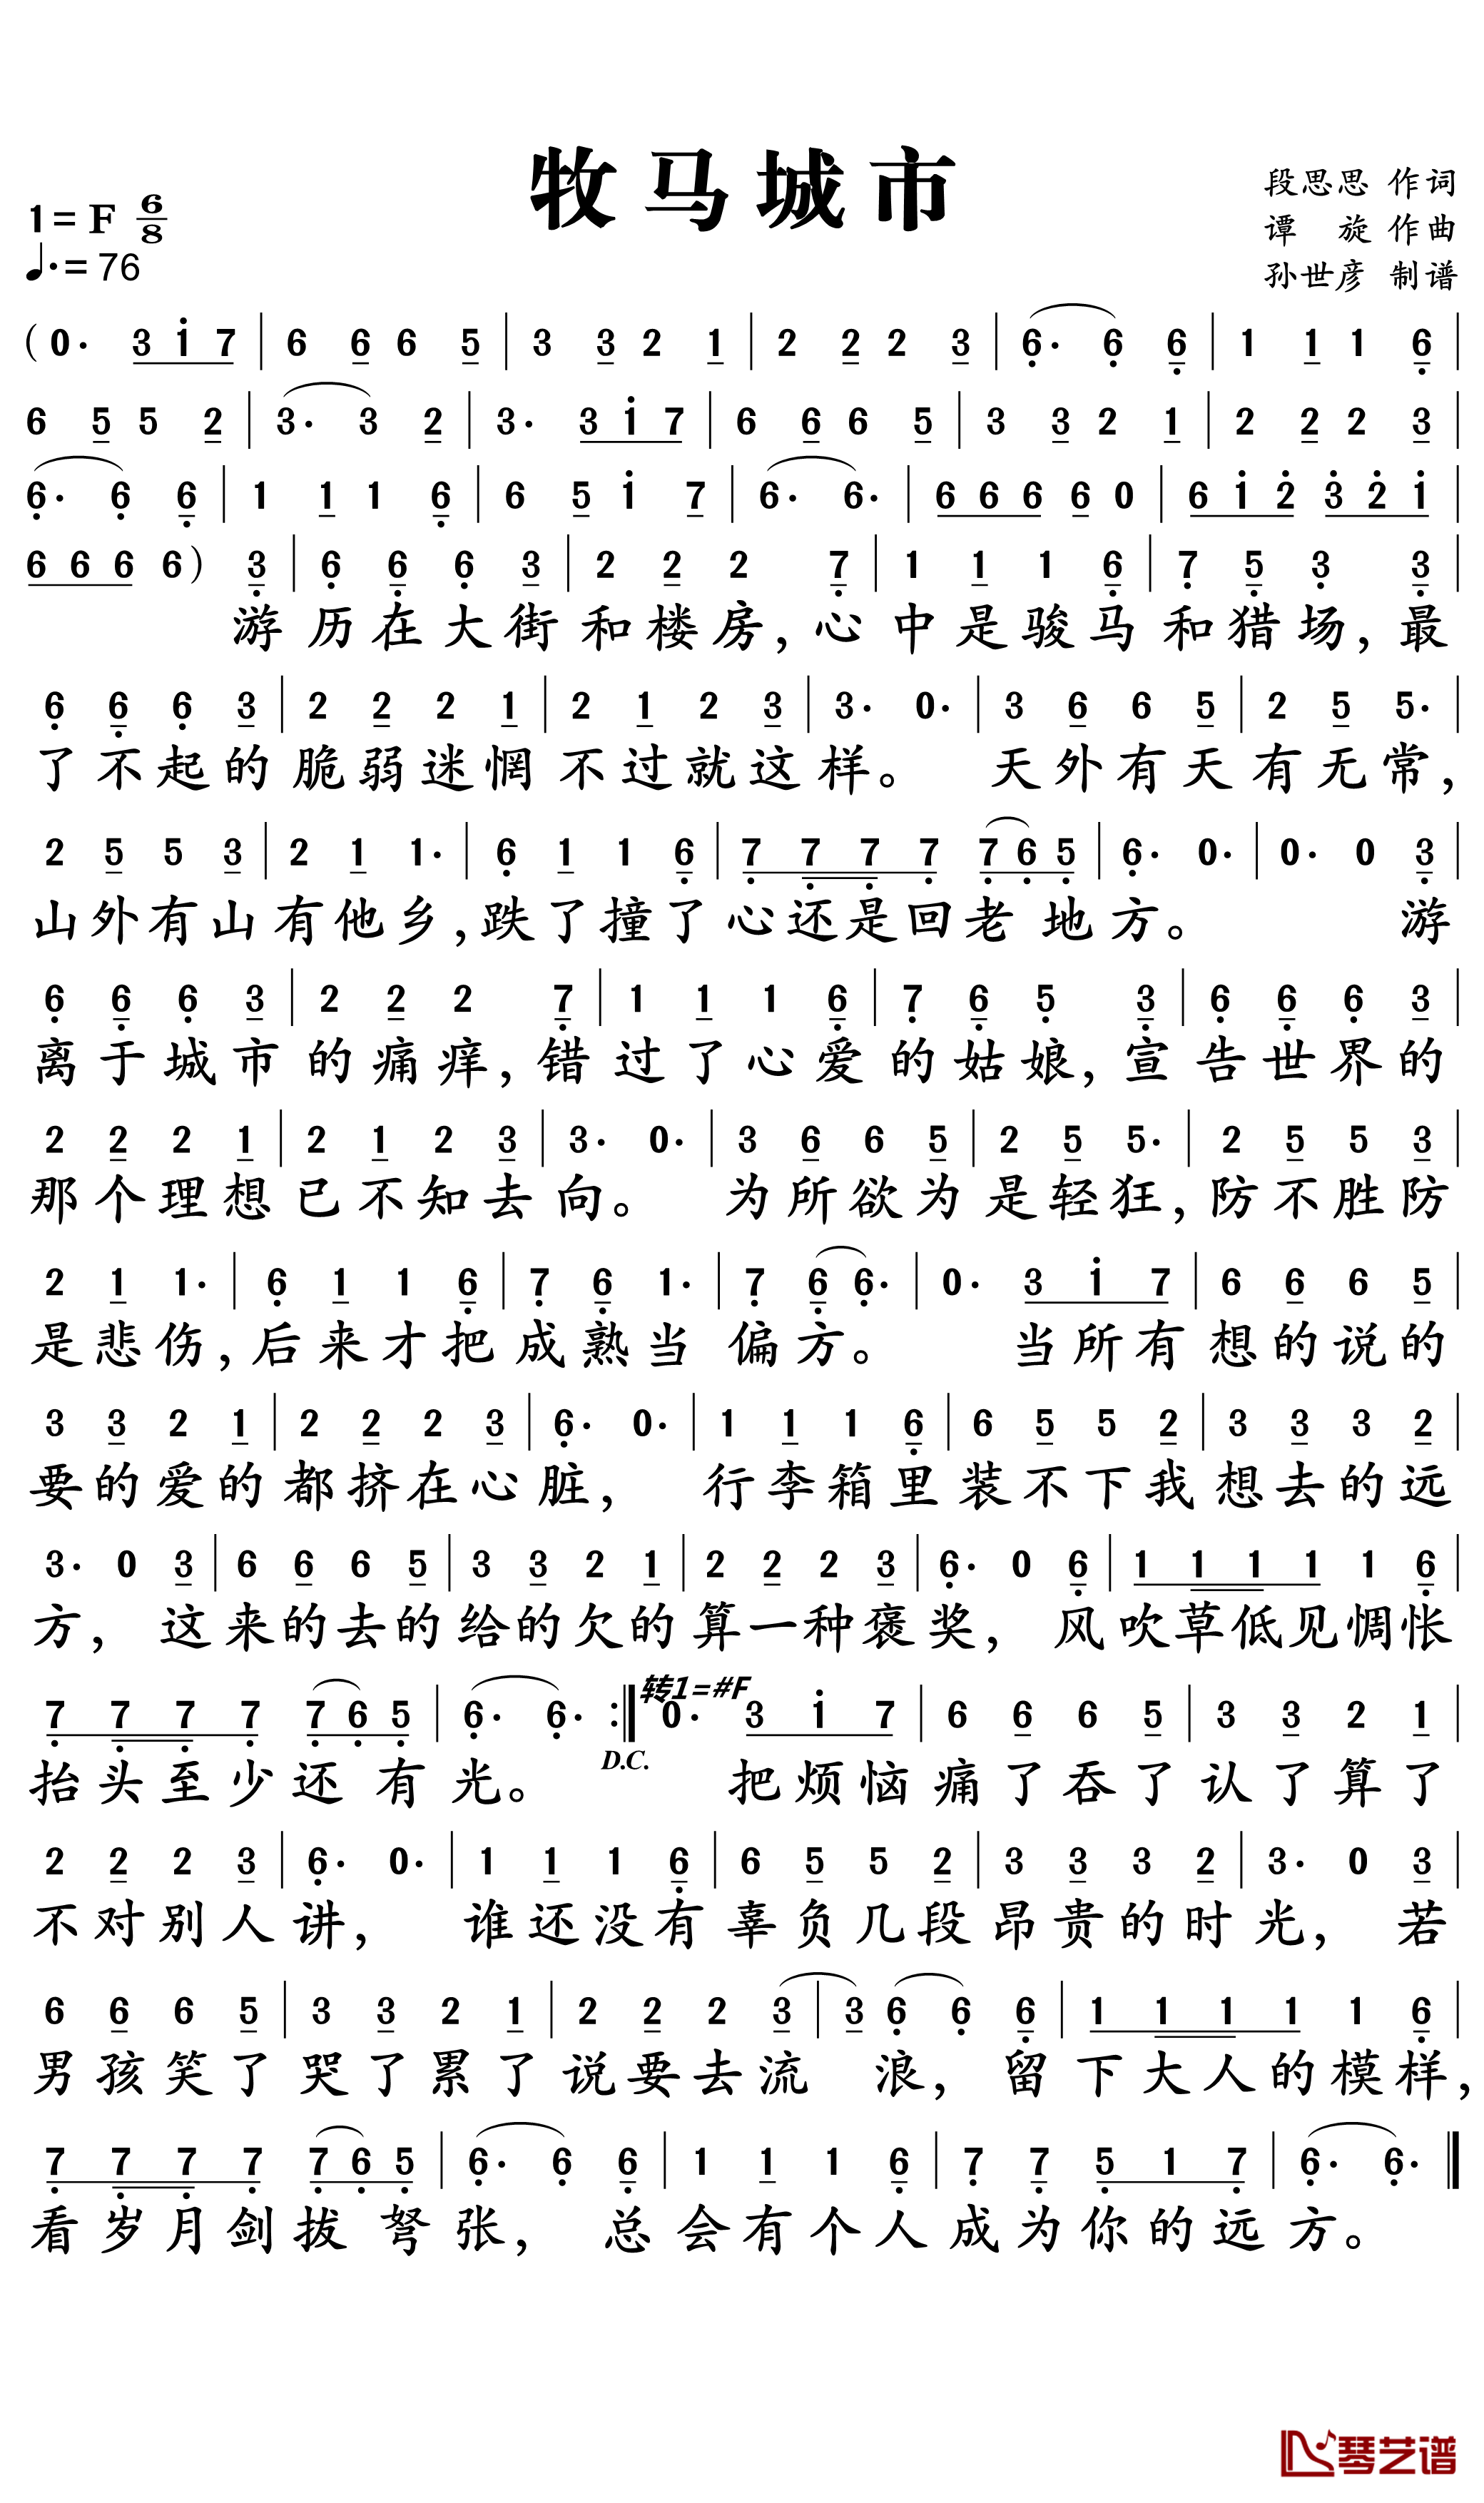 牧马城市
段思思 作词
谭 旋 作曲
孙世彦 制谱
1= F 6/8
♩.= 76
( 0· 3 i 7 | 6 6 6 5 | 3 3 2 1 | 2 2 2 3 | 6· 6 6 | 1 1 1 6 |
6 5 5 2 | 3· 3 2 | 3· 3 i 7 | 6 6 6 5 | 3 3 2 1 | 2 2 2 3 |
6· 6 6 | 1 1 1 6 | 6 5 i 7 | 6· 6· | 6 6 6 6 0 | 6 i 2 3 2 i |
6 6 6 6 ) 3 | 6 6 6 3 | 2 2 2 7 | 1 1 1 6 | 7 5 3 3 |
游历在大街和楼房,心中是骏马和猎场,最
6 6 6 3 | 2 2 2 1 | 2 1 2 3 | 3· 0· | 3 6 6 5 | 2 5 5· |
了不起的脆弱迷惘不过就这样。 天外有天有无常,
2 5 5 3 | 2 1 1· | 6 1 1 6 | 7 7 7 7 7 6 5 | 6· 0· | 0· 0 3 |
山外有山有他乡,跌了撞了心还是回老地方。 游
6 6 6 3 | 2 2 2 7 | 1 1 1 6 | 7 6 5 3 | 6 6 6 3 |
离于城市的痛痒,错过了心爱的姑娘,宣告世界的
2 2 2 1 | 2 1 2 3 | 3· 0· | 3 6 6 5 | 2 5 5· | 2 5 5 3 |
那个理想已不知去向。 为所欲为是轻狂,防不胜防
2 1 1· | 6 1 1 6 | 7 6 1· | 7 6 6· | 0· 3 i 7 | 6 6 6 5 |
是悲伤,后来才把成熟当偏方。 当所有想的说的
3 3 2 1 | 2 2 2 3 | 6· 0· | 1 1 1 6 | 6 5 5 2 | 3 3 3 2 |
要的爱的都挤在心脏, 行李箱里装不下我想去的远
3· 0 3 | 6 6 6 5 | 3 3 2 1 | 2 2 2 3 | 6· 0 6 | 1 1 1 1 1 6 |
方, 这来的去的给的欠的算一种褒奖, 风吹草低见惆怅
转1=#F
7 7 7 7 7 6 5 | 6· 6· :| 0· 3 i 7 | 6 6 6 5 | 3 3 2 1 |
D.C.
抬头至少还有光。 把烦恼痛了吞了认了算了
2 2 2 3 | 6· 0· | 1 1 1 6 | 6 5 5 2 | 3 3 3 2 | 3· 0 3 |
不对别人讲, 谁还没有辜负几段昂贵的时光, 若
6 6 6 5 | 3 3 2 1 | 2 2 2 3 | 3 6 6 6 | 1 1 1 1 1 6 |
男孩笑了哭了累了说要去流 浪, 留下大人的模样,
7 7 7 7 7 6 5 | 6· 6 6 | 1 1 1 6 | 7 7 5 1 7 | 6· 6· ‖
看岁月剑拔弩张, 总会有个人成为你的远方。
琴艺谱